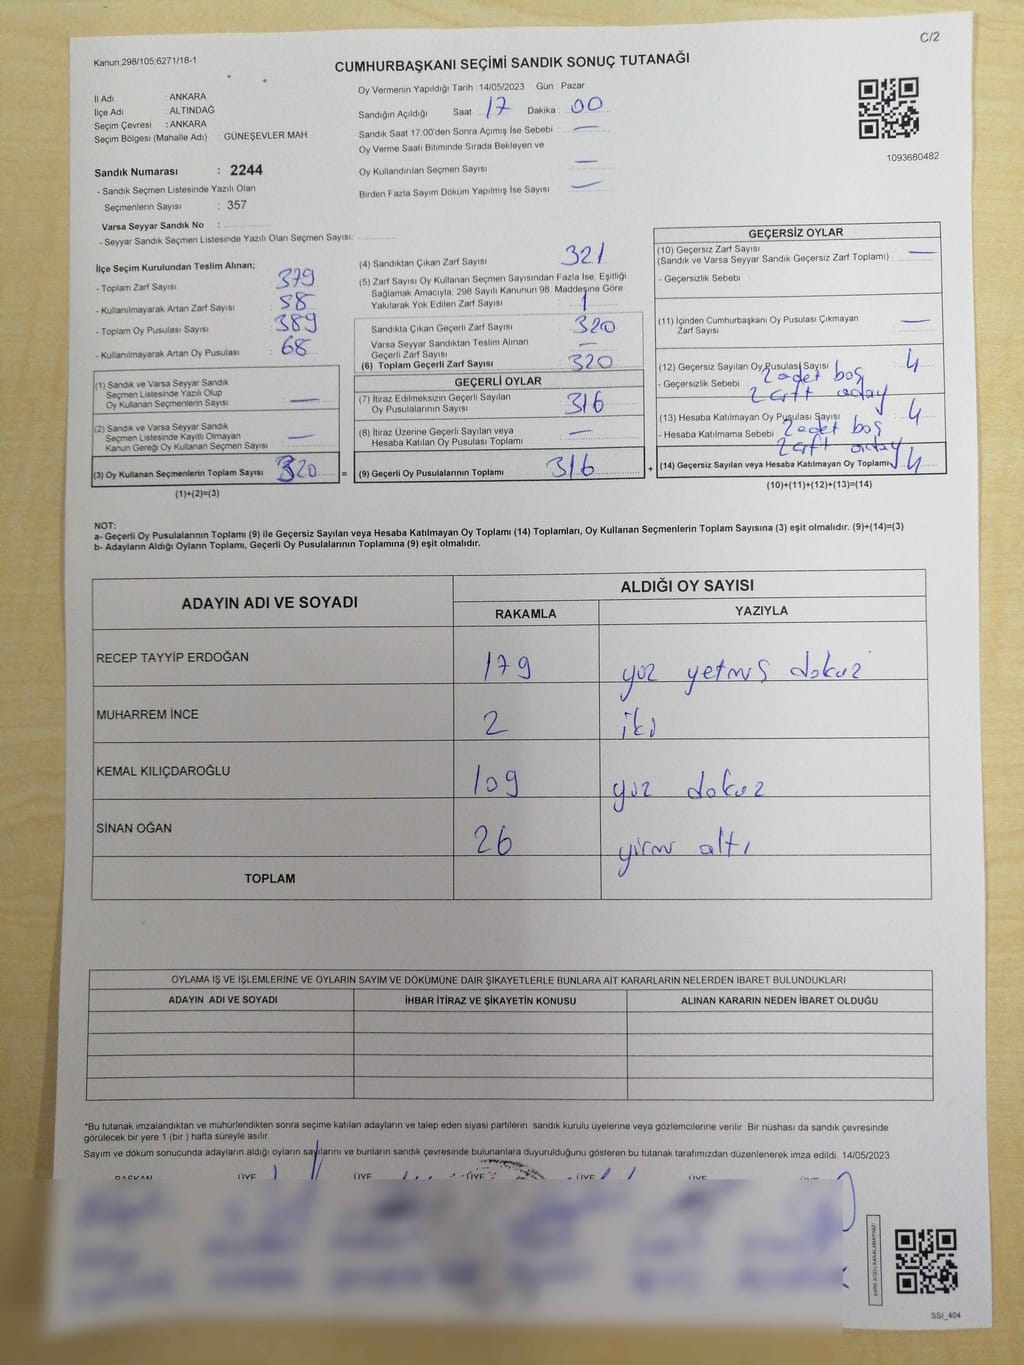 C/2
Kanun;298/105;6271/18-1
CUMHURBAŞKANI SEÇİMİ SANDIK SONUÇ TUTANAĞI
İl Adı : ANKARA
İlçe Adı : ALTINDAĞ
Seçim Çevresi : ANKARA
Seçim Bölgesi (Mahalle Adı) : GÜNEŞEVLER MAH.
Oy Vermenin Yapıldığı Tarih : 14/05/2023 Gün : Pazar
Sandığın Açıldığı Saat 17 Dakika : 00
Sandık Saat 17:00'den Sonra Açımış İse Sebebi : —
Oy Verme Saati Bitiminde Sırada Bekleyen ve
Oy Kullandırılan Seçmen Sayısı —
Birden Fazla Sayım Döküm Yapılmış İse Sayısı —
1093680482
Sandık Numarası : 2244
- Sandık Seçmen Listesinde Yazılı Olan
Seçmenlerin Sayısı : 357
Varsa Seyyar Sandık No :
- Seyyar Sandık Seçmen Listesinde Yazılı Olan Seçmen Sayısı:
İlçe Seçim Kurulundan Teslim Alınan;
- Toplam Zarf Sayısı : 379
- Kullanılmayarak Artan Zarf Sayısı : 58
- Toplam Oy Pusulası Sayısı : 389
- Kullanılmayarak Artan Oy Pusulası : 68
(1) Sandık ve Varsa Seyyar Sandık
Seçmen Listesinde Yazılı Olup
Oy Kullanan Seçmenlerin Sayısı : —
(2) Sandık ve Varsa Seyyar Sandık
Seçmen Listesinde Kayıtlı Olmayan
Kanun Gereği Oy Kullanan Seçmen Sayısı : —
(3) Oy Kullanan Seçmenlerin Toplam Sayısı : 320 =
(1)+(2)=(3)
(4) Sandıktan Çıkan Zarf Sayısı : 321
(5) Zarf Sayısı Oy Kullanan Seçmen Sayısından Fazla İse, Eşitliği
Sağlamak Amacıyla, 298 Sayılı Kanunun 98. Maddesine Göre
Yakılarak Yok Edilen Zarf Sayısı : 1
Sandıkta Çıkan Geçerli Zarf Sayısı : 320
Varsa Seyyar Sandıktan Teslim Alınan
Geçerli Zarf Sayısı : —
(6) Toplam Geçerli Zarf Sayısı : 320
GEÇERLİ OYLAR
(7) İtiraz Edilmeksizin Geçerli Sayılan
Oy Pusulalarının Sayısı : 316
(8) İtiraz Üzerine Geçerli Sayılan veya
Hesaba Katılan Oy Pusulası Toplamı : —
(9) Geçerli Oy Pusulalarının Toplamı : 316 +
GEÇERSİZ OYLAR
(10) Geçersiz Zarf Sayısı
(Sandık ve Varsa Seyyar Sandık Geçersiz Zarf Toplamı) : —
- Geçersizlik Sebebi :
(11) İçinden Cumhurbaşkanı Oy Pusulası Çıkmayan
Zarf Sayısı : —
(12) Geçersiz Sayılan Oy Pusulası Sayısı : 4
- Geçersizlik Sebebi : 2 adet boş
2 çift aday
(13) Hesaba Katılmayan Oy Pusulası Sayısı : 4
- Hesaba Katılmama Sebebi : 2 adet boş
2 çift aday
(14) Geçersiz Sayılan veya Hesaba Katılmayan Oy Toplamı : 4
(10)+(11)+(12)+(13)=(14)
NOT:
a- Geçerli Oy Pusulalarının Toplamı (9) ile Geçersiz Sayılan veya Hesaba Katılmayan Oy Toplamı (14) Toplamları, Oy Kullanan Seçmenlerin Toplam Sayısına (3) eşit olmalıdır. (9)+(14)=(3)
b- Adayların Aldığı Oyların Toplamı, Geçerli Oy Pusulalarının Toplamına (9) eşit olmalıdır.
ADAYIN ADI VE SOYADI
ALDIĞI OY SAYISI
RAKAMLA YAZIYLA
RECEP TAYYİP ERDOĞAN 179 yüz yetmiş dokuz
MUHARREM İNCE 2 iki
KEMAL KILIÇDAROĞLU 109 yüz dokuz
SİNAN OĞAN 26 yirmi altı
TOPLAM
OYLAMA İŞ VE İŞLEMLERİNE VE OYLARIN SAYIM VE DÖKÜMÜNE DAİR ŞİKAYETLERLE BUNLARA AİT KARARLARIN NELERDEN İBARET BULUNDUKLARI
ADAYIN ADI VE SOYADI İHBAR İTİRAZ VE ŞİKAYETİN KONUSU ALINAN KARARIN NEDEN İBARET OLDUĞU
*Bu tutanak imzalandıktan ve mühürlendikten sonra seçime katılan adayların ve talep eden siyasi partilerin sandık kurulu üyelerine veya gözlemcilerine verilir. Bir nüshası da sandık çevresinde
görülecek bir yere 1 (bir) hafta süreyle asılır.
Sayım ve döküm sonucunda adayların aldığı oyların sayılarını ve bunların sandık çevresinde bulunanlara duyurulduğunu gösteren bu tutanak tarafımızdan düzenlenerek imza edildi. 14/05/2023
BAŞKAN ÜYE ÜYE ÜYE ÜYE ÜYE ÜYE
SSI_404